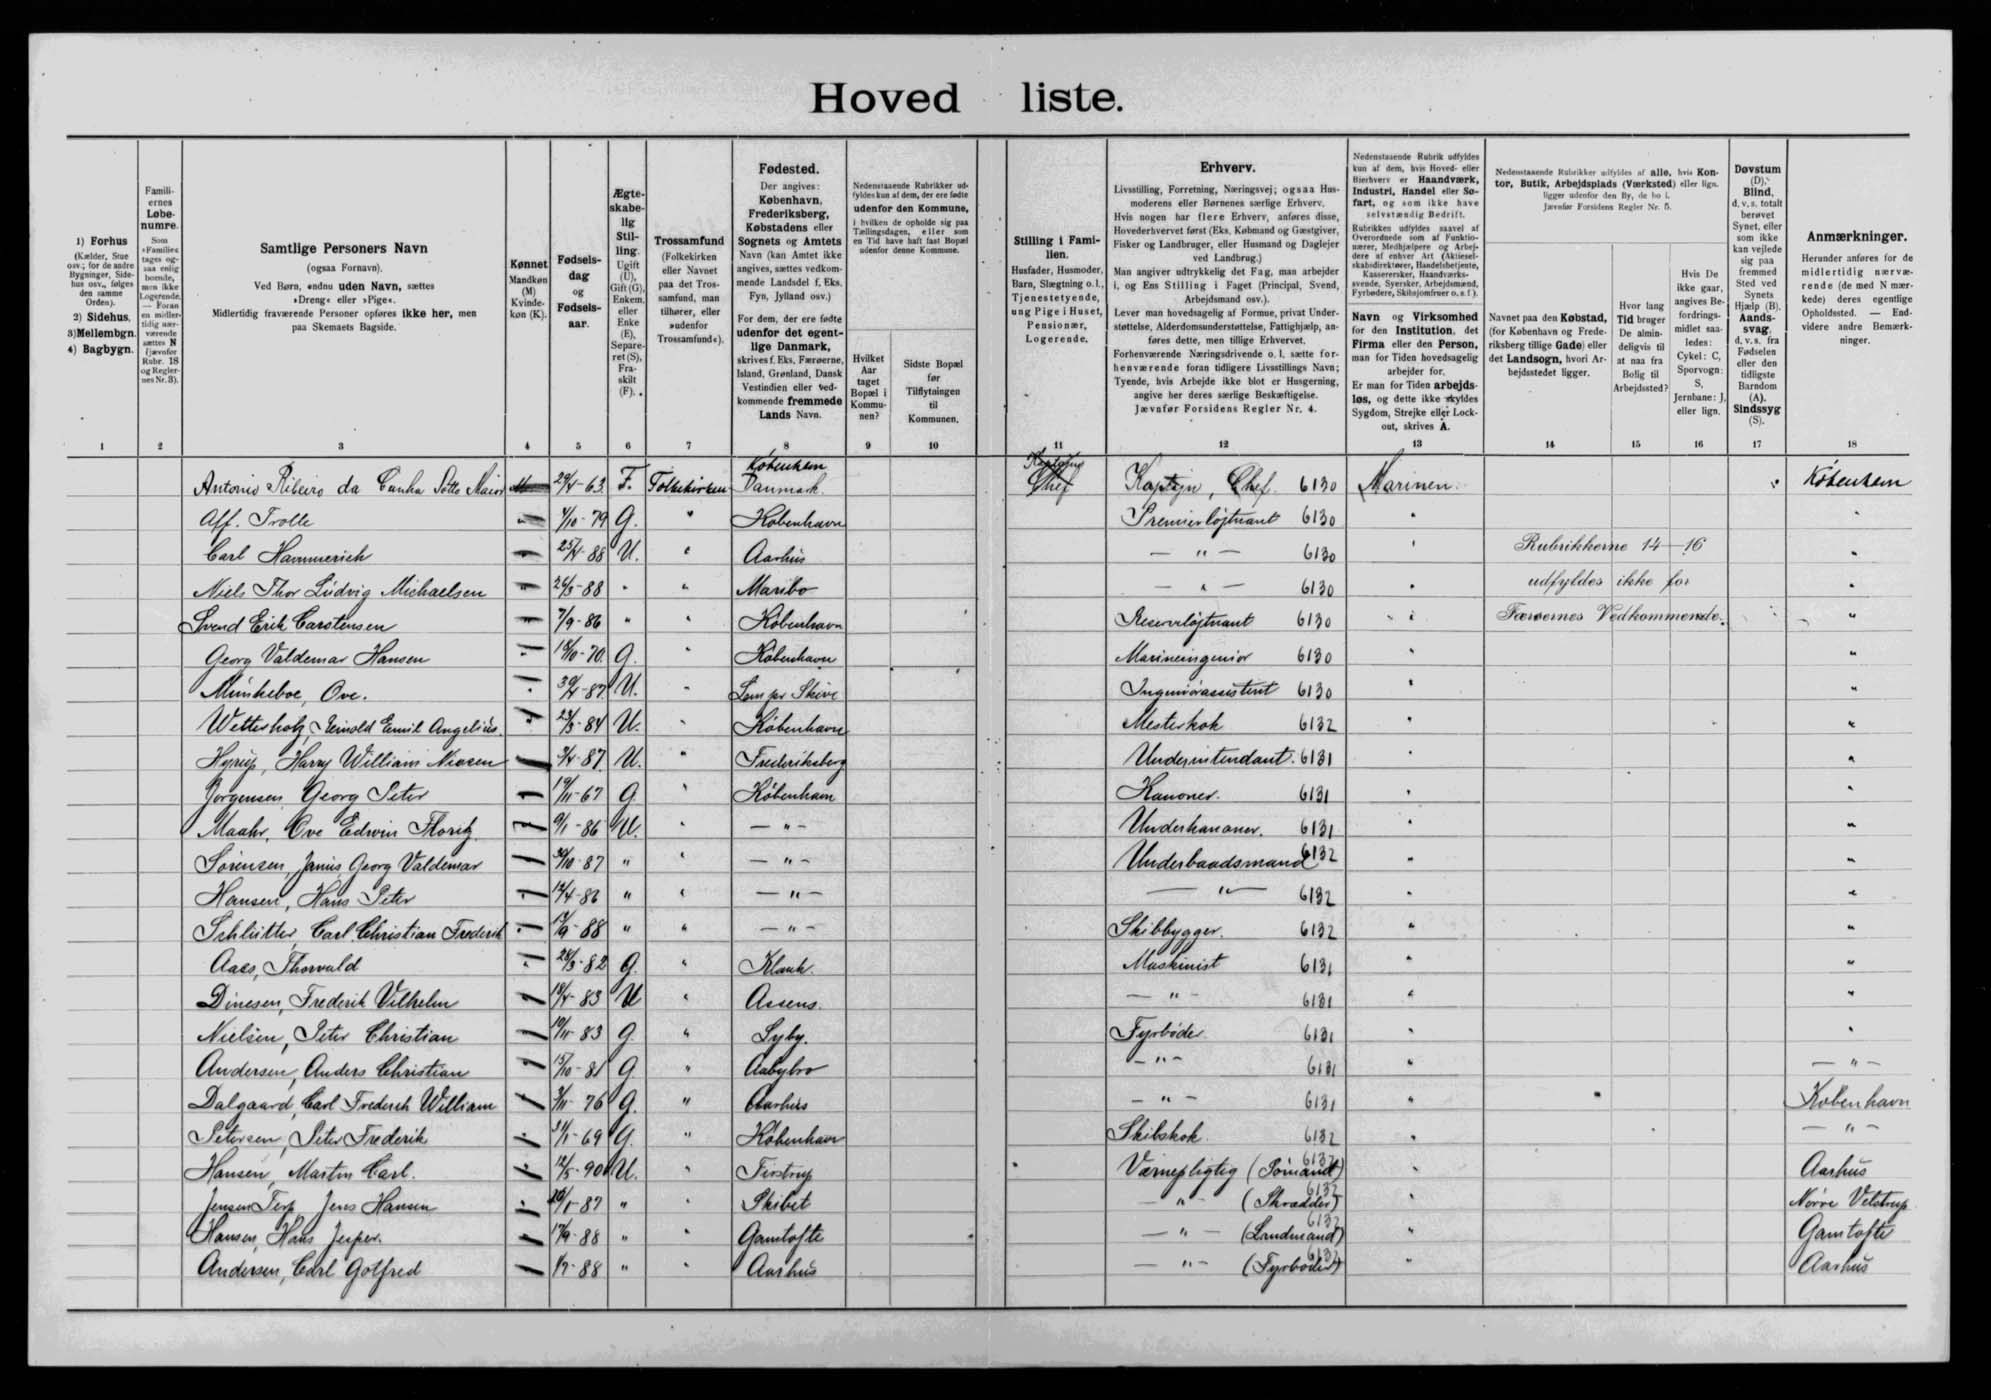 Hoved liste.
1) Forhus
(Kælder, Stue
osv.; for de andre
Bygninger, Sidehus
osv., følges
den samme
Orden).
2) Sidehus,
3) Mellembgn.
4) Bagbygn.
Familiernes
Løbenumre.
Som
»Familie«
tages ogsaa
enlig
boende,
men ikke
Logerende.
— Foran
en midlertidig
nærværende
sættes N
(jævnfør
Rubr. 18
og Regler-
nes Nr. 3).
Samtlige Personers Navn
(ogsaa Fornavn).
Ved Børn, endnu uden Navn, sættes
»Dreng« eller »Pige«.
Midlertidig fraværende Personer opføres ikke her, men
paa Skemaets Bagside.
Kønnet
Mandkøn
(M)
Kvinde-
køn (K).
Fødsels-
dag
og
Fødsels-
aar.
Ægte-
skabe-
lig
Stil-
ling.
Ugift
(U),
Gift (G),
Enkem.
eller
Enke
(E),
Separe-
ret (S),
Fra-
skilt
(F).
Trossamfund
(Folkekirken
eller Navnet
paa det Tros-
samfund, man
tilhører, eller
»udenfor
Trossamfund«).
Fødested.
Der angives:
København,
Frederiksberg,
Købstadens eller
Sognets og Amtets
Navn (kan Amtet ikke
angives, sættes vedkom-
mende Landsdel f. Eks.
Fyn, Jylland osv.)
For dem, der ere fødte
udenfor det egent-
lige Danmark,
skrives f. Eks. Færøerne,
Island, Grønland, Dansk
Vestindien eller ved-
kommende fremmede
Lands Navn.
Nedenstaaende Rubrikker ud-
fyldes kun af dem, der ere fødte
udenfor den Kommune,
i hvilken de opholde sig paa
Tællingsdagen, eller som
en Tid have haft fast Bopæl
udenfor denne Kommune.
Hvilket
Aar
taget
Bopæl i
Kommu-
nen?
Sidste Bopæl
før
Tilflytningen
til
Kommunen.
Stilling i Fami-
lien.
Husfader, Husmoder,
Barn, Slægtning o.l.,
Tjenestetyende,
ung Pige i Huset,
Pensionær,
Logerende.
Erhverv.
Livsstilling, Forretning, Næringsvej; ogsaa Hus-
moderens eller Børnenes særlige Erhverv.
Hvis nogen har flere Erhverv, anføres disse,
Hovederhvervet først (Eks. Købmand og Gæstgiver,
Fisker og Landbruger, eller Husmand og Daglejer
ved Landbrug.)
Man angiver udtrykkelig det Fag, man arbejder
i, og Ens Stilling i Faget (Principal, Svend,
Arbejdsmand osv.).
Lever man hovedsagelig af Formue, privat Under-
støttelse, Alderdomsunderstøttelse, Fattighjælp, an-
føres dette, men tillige Erhvervet.
Forhenværende Næringsdrivende o. l. sætte for-
henværende foran tidligere Livsstillings Navn;
Tyende, hvis Arbejde ikke blot er Husgerning,
angive her deres særlige Beskæftigelse.
Jævnfør Forsidens Regler Nr. 4.
Nedenstaaende Rubrik udfyldes
kun af dem, hvis Hoved- eller
Bierhverv er Haandværk,
Industri, Handel eller Sø-
fart, og som ikke have
selvstændig Bedrift.
Rubrikken udfyldes saavel af
Overordnede som af Funktio-
nærer, Medhjælpere og Arbej-
dere af enhver Art (Aktiesel-
skabsdirektører, Handelsbetjente,
Kasserersker, Haandværks-
svende, Syersker, Arbejdsmænd,
Fyrbødere, Skibsjomfruer o. s. f.).
Navn og Virksomhed
for den Institution, det
Firma eller den Person,
man for Tiden hovedsagelig
arbejder for.
Er man for Tiden arbejds-
løs, og dette ikke skyldes
Sygdom, Strejke eller Lock-
out, skrives A.
Nedenstaaende Rubrikker udfyldes af alle, hvis Kon-
tor, Butik, Arbejdsplads (Værksted) eller lign.
ligger udenfor den By, de bo i.
Jævnfør Forsidens Regler Nr. 5.
Navnet paa den Købstad,
(for København og Frede-
riksberg tillige Gade) eller
det Landsogn, hvori Ar-
bejdsstedet ligger.
Hvor lang
Tid bruger
De almin-
deligvis til
at naa fra
Bolig til
Arbejdssted?
Hvis De
ikke gaar,
angives Be-
fordrings-
midlet saa-
ledes:
Cykel: C,
Sporvogn:
S,
Jernbane: J,
eller lign.
Døvstum
(D),
Blind,
d. v. s. totalt
berøvet
Synet, eller
som ikke
kan vejlede
sig paa
fremmed
Sted ved
Synets
Hjælp (B).
Aands-
svag,
d. v. s. fra
Fødselen
eller den
tidligste
Barndom
(A).
Sindssyg
(S).
Anmærkninger.
Herunder anføres for de
midlertidig nærvæ-
rende (de med N mær-
kede) deres egentlige
Opholdssted. — End-
videre andre Bemærk-
ninger.
1 2 3 4 5 6 7 8 9 10 11 12 13 14 15 16 17 18
Antonio Ribeiro da Cunha Sotto Maior M 29/4-63. F. Folkekirken København Danmark. Chef Kaptejn, Chef. 6130 Marinen. København
Aff. Trolle " 4/10-79 G. " København Premierløjtnant 6130 " "
Carl Hammerich " 25/4-88 U. " Aarhus — " — 6130 " Rubrikkerne 14—16 "
Niels Thor Ludvig Michaelsen " 26/5-88 " " Maribo — " — 6130 " udfyldes ikke for "
Svend Erik Carstensen " 7/9-86 " " København Reserveløjtnant 6130 " Færøernes Vedkommende. "
Georg Valdemar Hansen " 18/10-70. G. " København Marineingeniør 6130 " "
Munkeboe, Ove. " 30/4-87. U. " Lem pr Skive Ingeniørassistent 6130 " "
Wetterholz, Reinold Emil Angelius. " 23/3-84 U. " København Mesterkok 6132 " "
Hyrup, Harry William Niesen " 3/4-87. U. " Frederiksberg Underintendant. 6131 " "
Jørgensen, Georg Peter " 19/11-67 G. " København Kanoner. 6131 " "
Maahr, Ove Edwin Floritz. " 9/1-86 U. " — " — Underkanoner. 6131 " "
Sørensen, Janus Georg Valdemar " 30/10-87 " " — " — Underbaadsmand 6132 " "
Hansen, Hans Peter " 12/4-86 " " — " — — " — 6132 " "
Schlütter, Carl Christian Frederik " 17/9-88 " " — " — Skibbygger. 6132 " "
Aaes, Thorvald " 28/3-82 G. " Klank. Maskinist 6131 " "
Dinesen, Frederik Vilhelm " 18/4-83 U " Assens. — " — 6131 " "
Nielsen, Peter Christian " 10/11-83 G. " Lyby. Fyrbøder 6131 " "
Andersen, Anders Christian " 15/10-81 G " Aabybro — " — 6131 " — " —
Dalgaard, Carl Frederik William " 3/11-76 G. " Aarhus — " — 6131 " København
Petersen, Peter Frederik " 31/1-69 G. " København Skibskok. 6132 " — " —
Hansen, Martin Carl. " 12/5-90 U. " Firstrup Værnepligtig (Sømand) 6132 " Aarhus
Jensen Terp, Jens Hansen " 20/1-87 " " Skibet — " — (Skrædder) 6132 " Nørre Vilstrup
Hansen, Hans Jesper. " 17/9-88 " " Gamtofte — " — (Landmand) 6132 " Gamtofte
Andersen, Carl Gotfred " 1/7-88 " " Aarhus — " — (Fyrbøder) 6132 " Aarhus